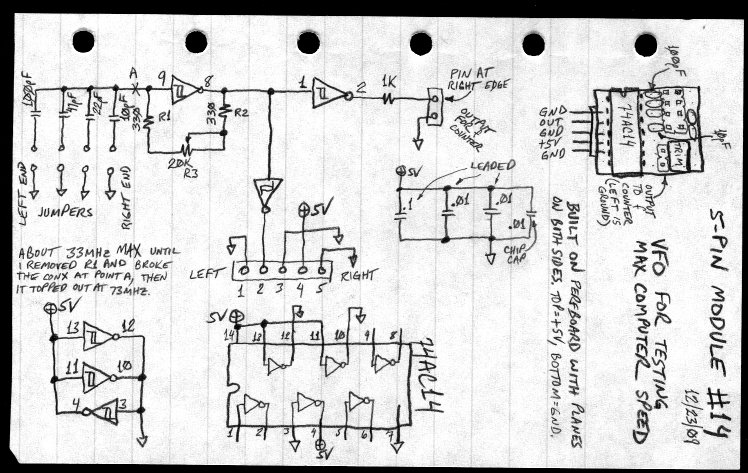 5-PIN MODULE #14
12/23/09
VFO FOR TESTING
MAX COMPUTER SPEED
BUILT ON PERFBOARD WITH PLANES
ON BOTH SIDES. TOP=+5V, BOTTOM=GND.
A
9
8
1
2
1K
PIN AT
RIGHT EDGE
OUTPUT
FOR
COUNTER
100pF
47pF
22pF
10pF
330
R1
330
R2
20K
R3
LEFT END
JUMPERS
RIGHT END
ABOUT 33MHZ MAX UNTIL
I REMOVED R1 AND BROKE
THE CONX AT POINT A, THEN
IT TOPPED OUT AT 73MHZ.
5V
LEFT
RIGHT
1 2 3 4 5
5V
LEADED
.1
.01
.01
.01
CHIP
CAP
100pF
GND
OUT
GND
+5V
GND
74AC14
TRIM
OUTPUT
TO
COUNTER
(LEFT IS
GROUND)
5V
13
12
11
10
4
3
5V
14
13
12
11
10
9
8
74AC14
1
2
3
4
5
6
7
5V